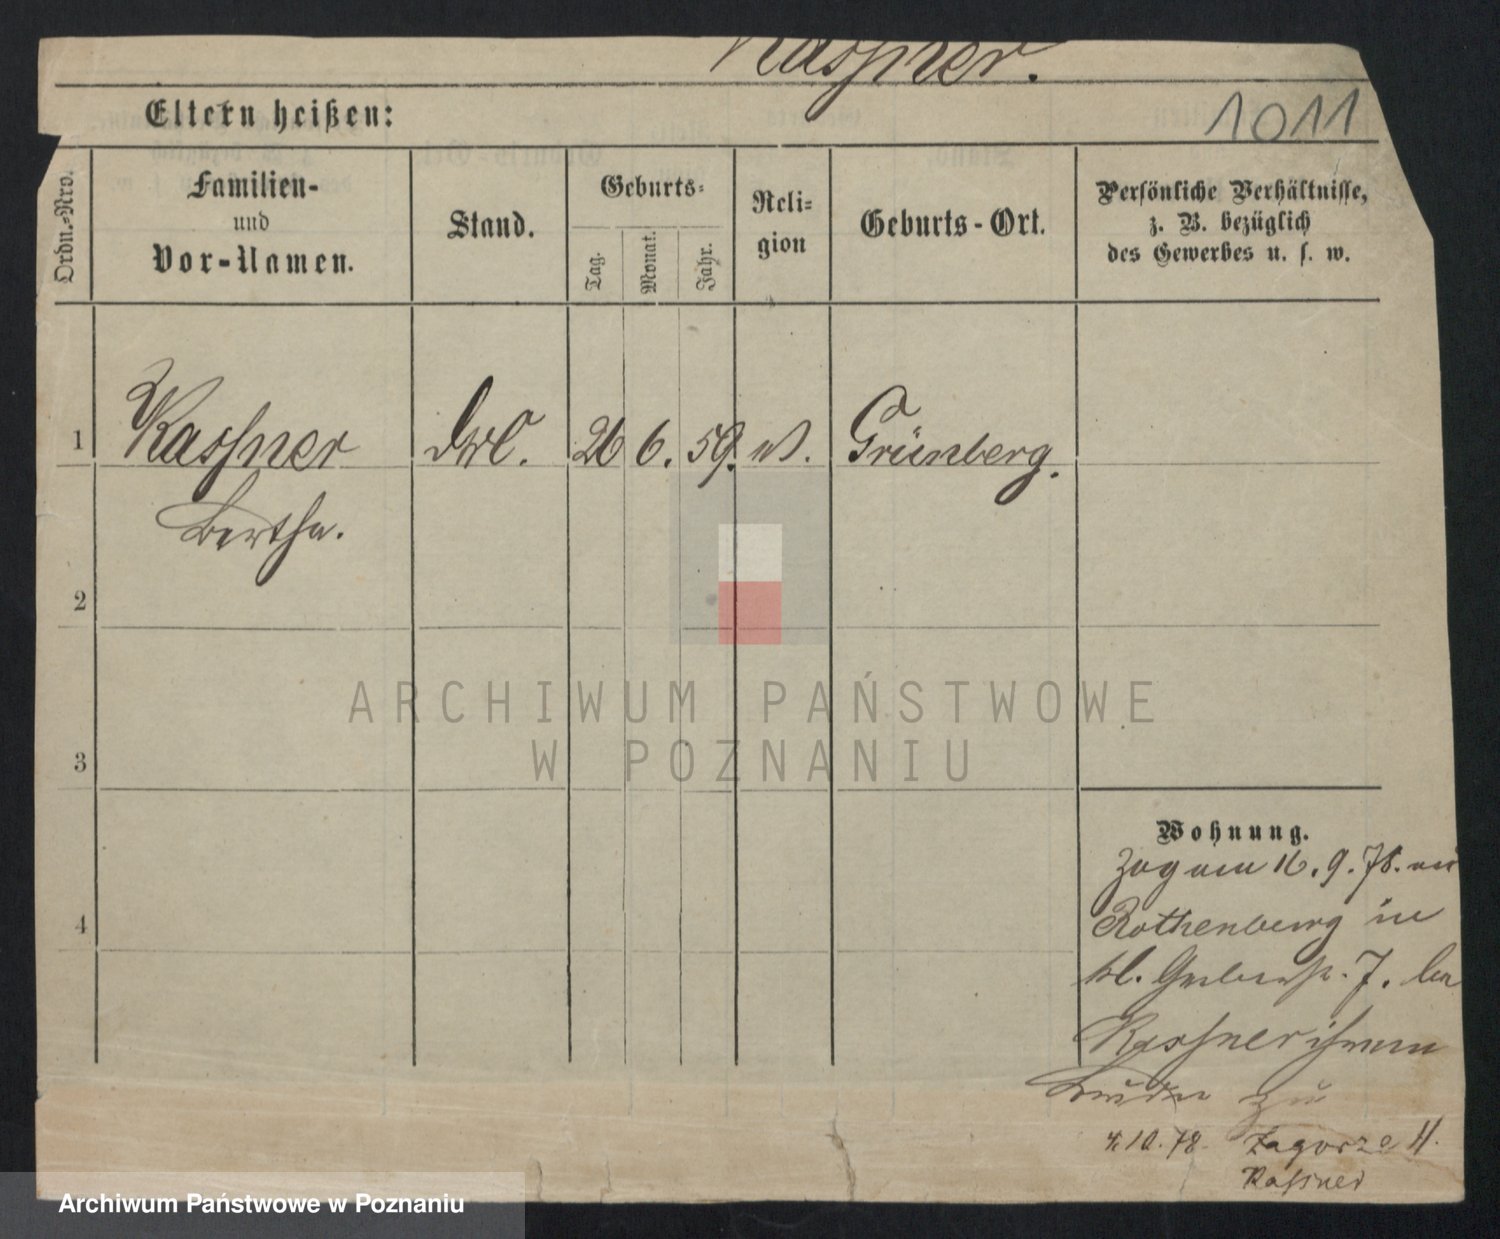 Kassner.
Eltern heißen:
1011
Ordn.-Nro.
Familien-
und
Vor-Namen.
Stand.
Geburts-
Tag.
Monat.
Jahr.
Reli-
gion
Geburts-Ort.
Persönliche Verhältnisse,
z. B. bezüglich
des Gewerbes u. s. w.
1
Kassner
26 6. 59.
Grünberg.
Bertha.
2
ARCHIWUM PAŃSTWOWE
W POZNANIU
3
Wohnung.
Zog am 16. 9. 78. aus
Rothenburg in
kl. Gerberstr. 7. bei
Kassner ihrem
Bruder zu
4
10. 78. Zagorze 11.
Kassner
Archiwum Państwowe w Poznaniu